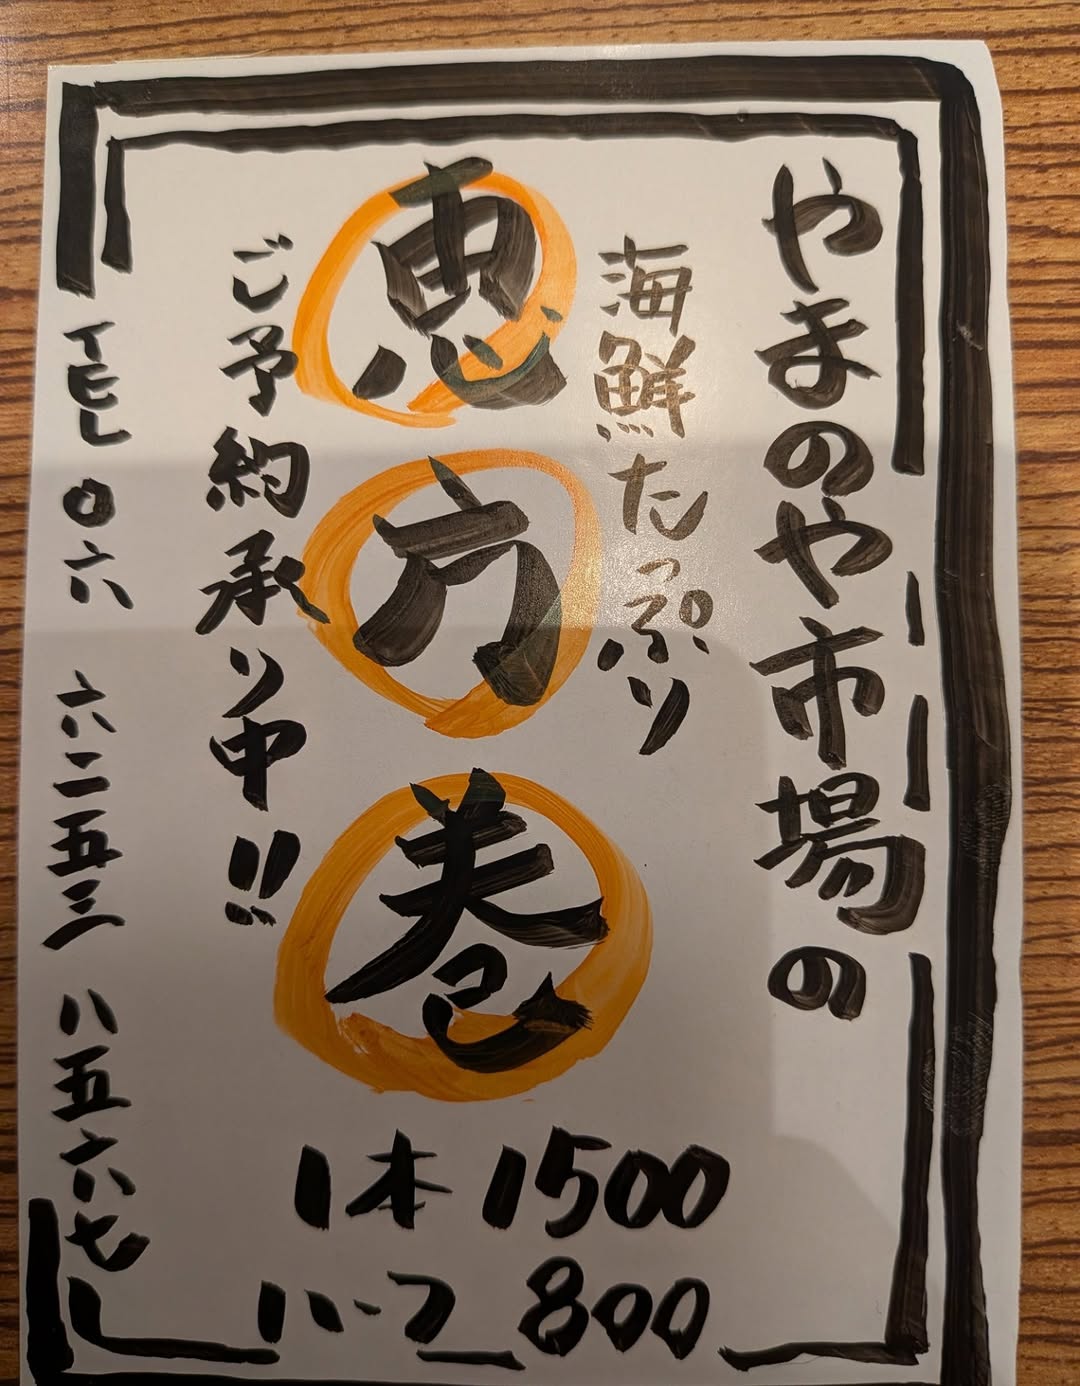 やまのや市場の
海鮮たっぷり
恵方巻
ご予約承り中!!
TEL 〇六 六二五三 八五六七
1本 1500
ハーフ 800